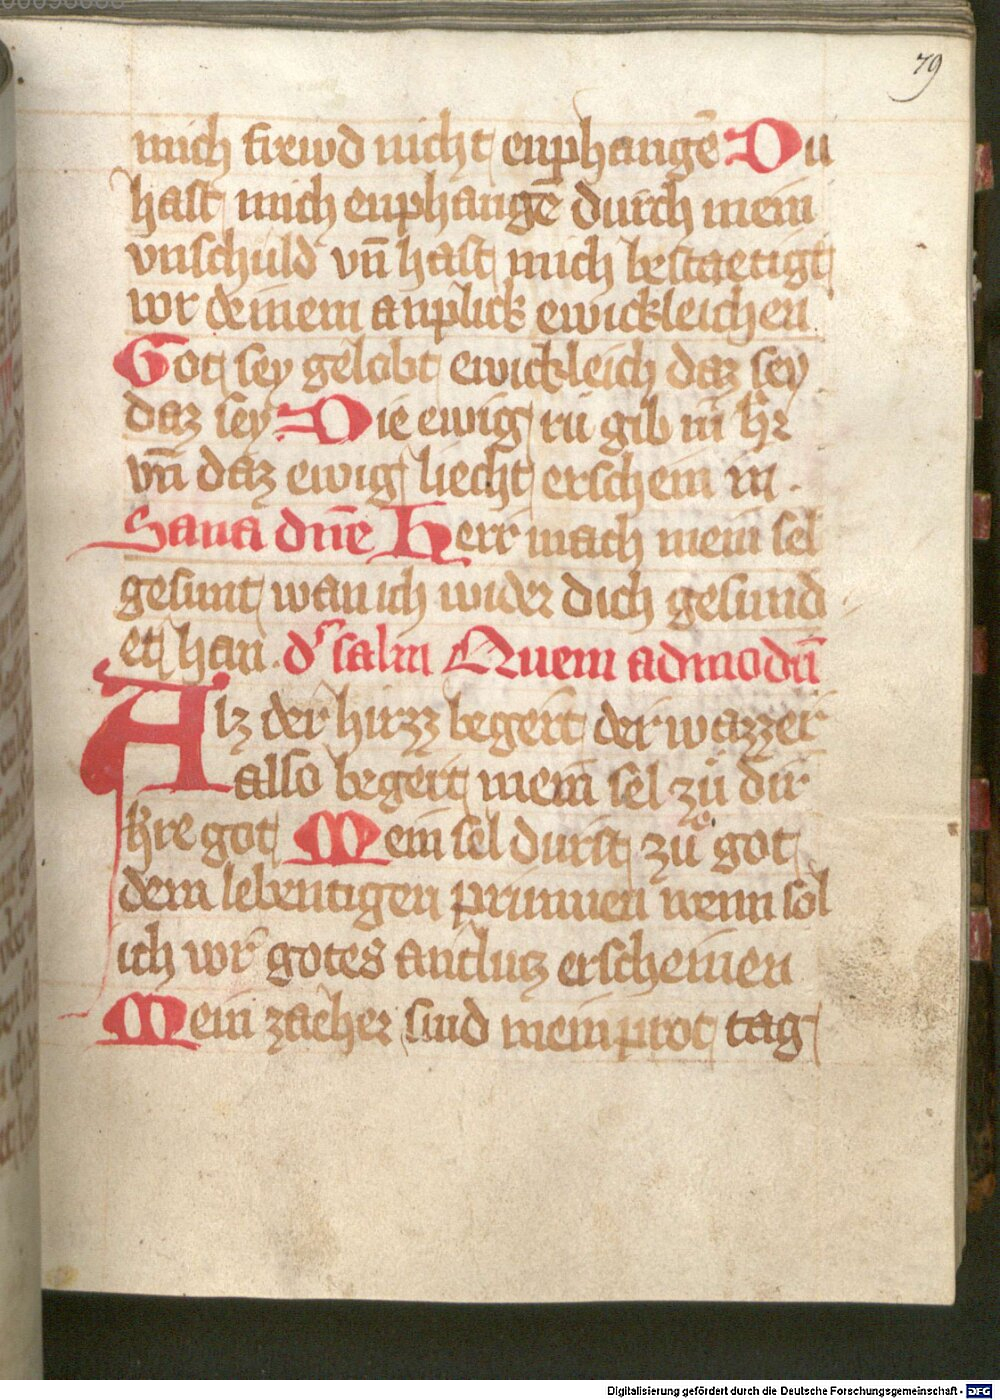 79
mich frewd nicht enphangē Du
hast mich enphangē durch mein
vnschuld vn̄ hast mich bestaetigt
vor deinem anplick ewickleichen
Got sey gelobt ewickleich daz sey
daz sey Die ewig rů gib in h̄r
vn̄ daz ewig liecht erschein in .
Sana dn̄e Herr mach mein sel
gesunt wan ich wider dich gesund
et han . dʼ salm Quem admodū
Alz der hirzz begert der wazzer
also begert mein sel zů dir
h̄re got Mein sel durst zů got
dem lebentigen prunnen wenn sol
ich vor gotes antlutz erscheinen
Mein zaeher sind mein prot tag
Digitalisierung gefördert durch die Deutsche Forschungsgemeinschaft - DFG